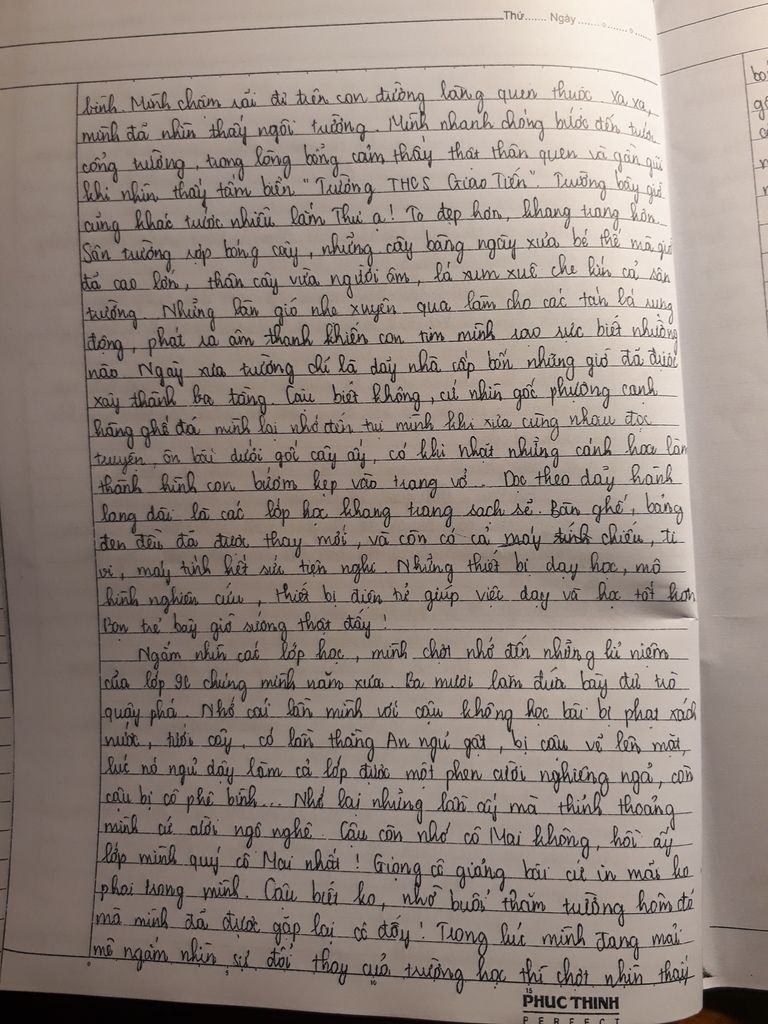 Thứ....... Ngày.......
bình. Mình chậm rãi đi trên con đường làng quen thuộc. Xa xa,
mình đã nhìn thấy ngôi trường. Mình nhanh chóng bước đến trước
cổng trường, trong lòng bỗng cảm thấy thật thân quen và gần gũi
khi nhìn thấy tấm biển "Trường THCS Giao Tiến". Trường bây giờ
cũng khác trước nhiều lắm Thư ạ! To đẹp hơn, khang trang hơn.
Sân trường rợp bóng cây, những cây bàng ngày xưa bé thế mà giờ
đã cao lớn, thân cây vừa người ôm, lá xum xuê che kín cả sân
trường. Những làn gió nhẹ xuyên qua làm cho các tán lá rung
động, phát ra âm thanh khiến con tim mình xao xuyến biết nhường
nào. Ngày xưa trường chỉ là dãy nhà cấp bốn nhưng giờ đã được
xây thành ba tầng. Cậu biết không, cứ nhìn gốc phượng cạnh
hàng ghế đá mình lại nhớ đến tụi mình khi xưa cùng nhau đọc
truyện, ôn bài dưới gốc cây ấy, có khi nhặt những cánh hoa làm
thành hình con bướm kẹp vào trang vở. Dọc theo dãy hành
lang dài là các lớp học khang trang sạch sẽ. Bàn ghế, bảng
đen đều đã được thay mới, và còn có cả máy tính chiếu, ti
vi, máy tính hết sức tiện nghi. Những thiết bị dạy học, mô
hình nghiên cứu, thiết bị điện tử giúp việc dạy và học tốt hơn
Bọn trẻ bây giờ sướng thật đấy!
Ngắm nhìn các lớp học, mình chợt nhớ đến những kỉ niệm
của lớp 9C chúng mình năm xưa. Ba mươi lăm đứa bày đủ trò
quậy phá. Nhớ cái lần mình với cậu không học bài bị phạt xách
nước, tưới cây, có lần thằng An ngủ gật, bị cậu vẽ lên mặt,
lúc nó ngủ dậy làm cả lớp được một phen cười nghiêng ngả, còn
cậu bị cô phê bình... Nhớ lại những lần ấy mà thỉnh thoảng
mình cứ cười ngô nghê. Cậu còn nhớ cô Mai không, hồi ấy
lớp mình quý cô Mai nhất! Giọng cô giảng bài cứ in mãi ko
phai trong mình. Cậu biết ko, nhờ buổi thăm trường hôm đó
mà mình đã được gặp lại cô đấy! Trong lúc mình đang mải
mê ngắm nhìn sự đổi thay của trường học thì chợt nhìn thấy
PHUC THINH
PERFECT